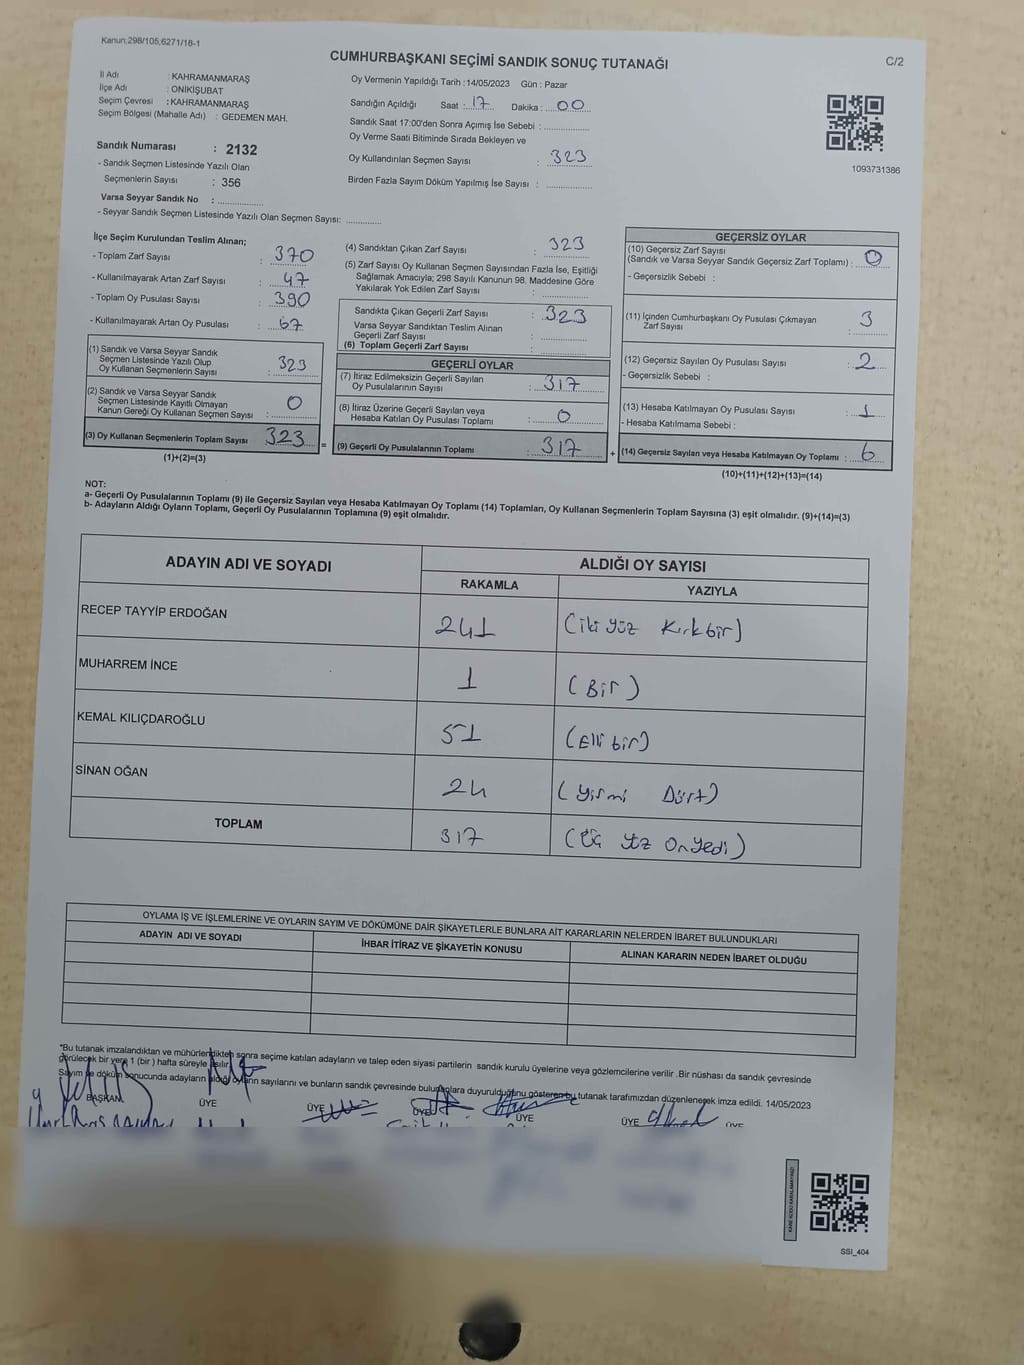 Kanun;298/105,6271/18-1
CUMHURBAŞKANI SEÇİMİ SANDIK SONUÇ TUTANAĞI
C/2
İl Adı : KAHRAMANMARAŞ
İlçe Adı : ONİKİŞUBAT
Seçim Çevresi : KAHRAMANMARAŞ
Seçim Bölgesi (Mahalle Adı) : GEDEMEN MAH.
Sandık Numarası : 2132
- Sandık Seçmen Listesinde Yazılı Olan
Seçmenlerin Sayısı : 356
Varsa Seyyar Sandık No :
- Seyyar Sandık Seçmen Listesinde Yazılı Olan Seçmen Sayısı:
Oy Vermenin Yapıldığı Tarih : 14/05/2023 Gün : Pazar
Sandığın Açıldığı Saat : 17 Dakika : 00
Sandık Saat 17:00'den Sonra Açımış İse Sebebi :
Oy Verme Saati Bitiminde Sırada Bekleyen ve
Oy Kullandırılan Seçmen Sayısı : 323
Birden Fazla Sayım Döküm Yapılmış İse Sayısı :
1093731386
İlçe Seçim Kurulundan Teslim Alınan;
- Toplam Zarf Sayısı : 370
- Kullanılmayarak Artan Zarf Sayısı : 47
- Toplam Oy Pusulası Sayısı : 390
- Kullanılmayarak Artan Oy Pusulası : 67
(1) Sandık ve Varsa Seyyar Sandık
Seçmen Listesinde Yazılı Olup
Oy Kullanan Seçmenlerin Sayısı : 323
(2) Sandık ve Varsa Seyyar Sandık
Seçmen Listesinde Kayıtlı Olmayan
Kanun Gereği Oy Kullanan Seçmen Sayısı : 0
(3) Oy Kullanan Seçmenlerin Toplam Sayısı 323 =
(1)+(2)=(3)
(4) Sandıktan Çıkan Zarf Sayısı : 323
(5) Zarf Sayısı Oy Kullanan Seçmen Sayısından Fazla İse, Eşitliği
Sağlamak Amacıyla; 298 Sayılı Kanunun 98. Maddesine Göre
Yakılarak Yok Edilen Zarf Sayısı :
Sandıkta Çıkan Geçerli Zarf Sayısı : 323
Varsa Seyyar Sandıktan Teslim Alınan
Geçerli Zarf Sayısı :
(6) Toplam Geçerli Zarf Sayısı :
GEÇERLİ OYLAR
(7) İtiraz Edilmeksizin Geçerli Sayılan
Oy Pusulalarının Sayısı : 317
(8) İtiraz Üzerine Geçerli Sayılan veya
Hesaba Katılan Oy Pusulası Toplamı : 0
(9) Geçerli Oy Pusulalarının Toplamı : 317 +
GEÇERSİZ OYLAR
(10) Geçersiz Zarf Sayısı
(Sandık ve Varsa Seyyar Sandık Geçersiz Zarf Toplamı) : 0
- Geçersizlik Sebebi :
(11) İçinden Cumhurbaşkanı Oy Pusulası Çıkmayan
Zarf Sayısı : 3
(12) Geçersiz Sayılan Oy Pusulası Sayısı : 2
- Geçersizlik Sebebi :
(13) Hesaba Katılmayan Oy Pusulası Sayısı : 1
- Hesaba Katılmama Sebebi :
(14) Geçersiz Sayılan veya Hesaba Katılmayan Oy Toplamı : 6
(10)+(11)+(12)+(13)=(14)
NOT:
a- Geçerli Oy Pusulalarının Toplamı (9) ile Geçersiz Sayılan veya Hesaba Katılmayan Oy Toplamı (14) Toplamları, Oy Kullanan Seçmenlerin Toplam Sayısına (3) eşit olmalıdır. (9)+(14)=(3)
b- Adayların Aldığı Oyların Toplamı, Geçerli Oy Pusulalarının Toplamına (9) eşit olmalıdır.
ADAYIN ADI VE SOYADI ALDIĞI OY SAYISI
RAKAMLA YAZIYLA
RECEP TAYYİP ERDOĞAN 241 (iki yüz Kırkbir)
MUHARREM İNCE 1 (Bir)
KEMAL KILIÇDAROĞLU 51 (Elli bir)
SİNAN OĞAN 24 (yirmi Dört)
TOPLAM 317 (Üç yüz Onyedi)
OYLAMA İŞ VE İŞLEMLERİNE VE OYLARIN SAYIM VE DÖKÜMÜNE DAİR ŞİKAYETLERLE BUNLARA AİT KARARLARIN NELERDEN İBARET BULUNDUKLARI
ADAYIN ADI VE SOYADI İHBAR İTİRAZ VE ŞİKAYETİN KONUSU ALINAN KARARIN NEDEN İBARET OLDUĞU
*Bu tutanak imzalandıktan ve mühürlendikten sonra seçime katılan adayların ve talep eden siyasi partilerin sandık kurulu üyelerine veya gözlemcilerine verilir .Bir nüshası da sandık çevresinde
görülecek bir yere 1 (bir ) hafta süreyle asılır.
Sayım ve döküm sonucunda adayların aldığı oyların sayılarını ve bunların sandık çevresinde bulunanlara duyurulduğunu gösteren bu tutanak tarafımızdan düzenlenerek imza edildi. 14/05/2023
BAŞKAN ÜYE ÜYE ÜYE ÜYE ÜYE ÜYE
SSI_404